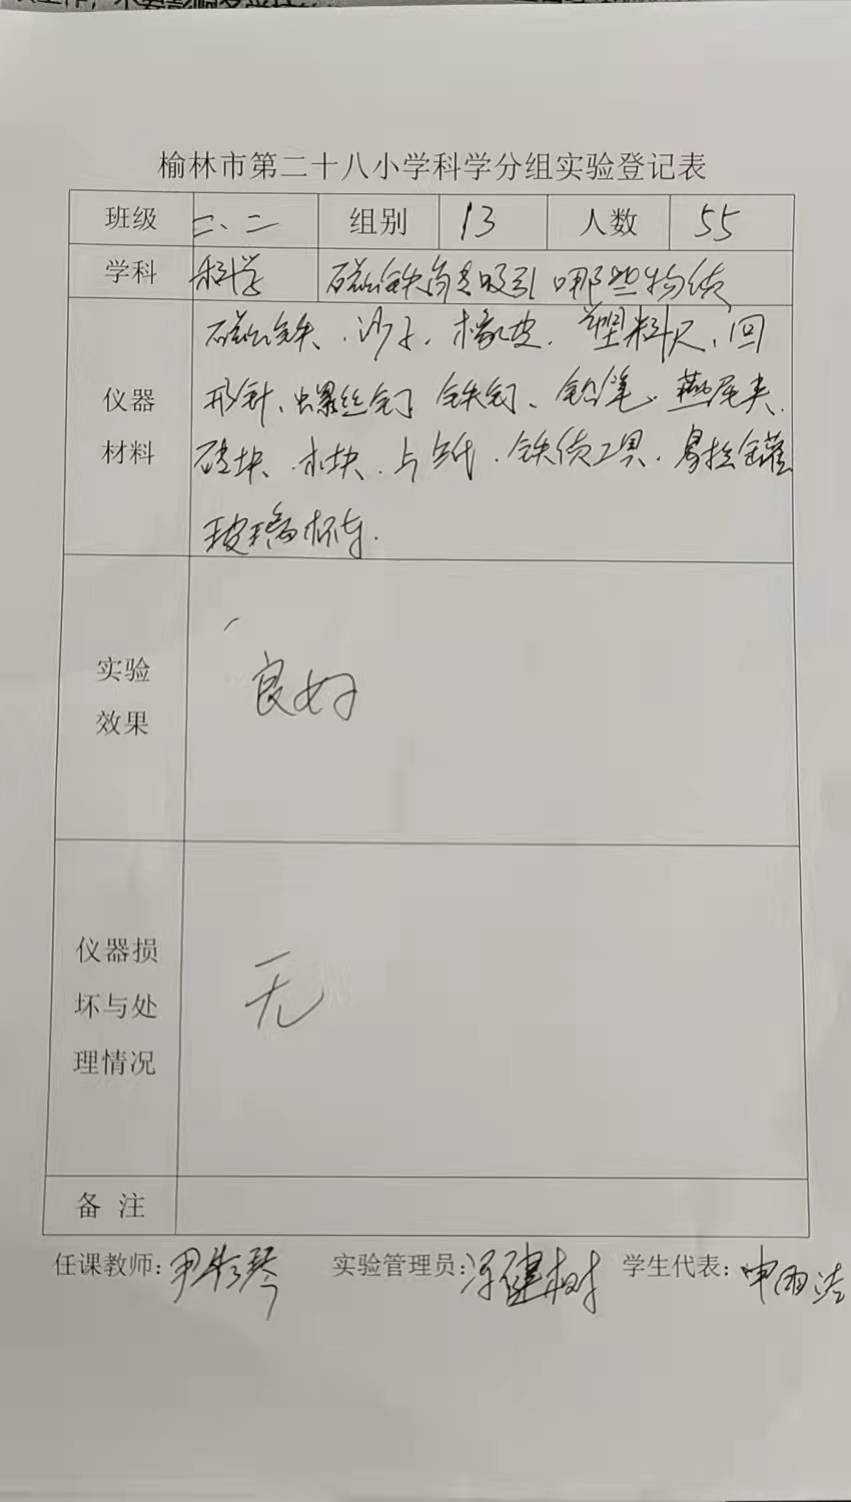 榆林市第二十八小学科学分组实验登记表
班级 二、二 组别 13 人数 55
学科 科学 磁铁能吸引哪些物质
仪器材料 磁铁、沙子、橡皮、塑料尺、回
形针、螺丝钉、铁钉、铅笔、燕尾夹、
砖块、木块、纸、铁质工具、易拉罐
玻璃杯等.
实验效果 良好
仪器损坏与处理情况 无
备注
任课教师: 实验管理员: 健树 学生代表: 申雨洁